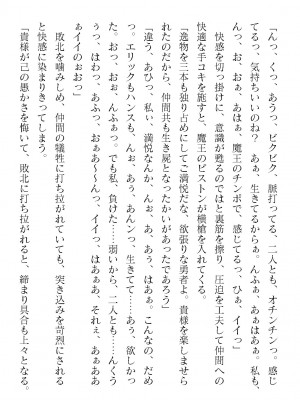 「んっ、くっ、あうっ。ビクビク、脈打ってる、二人とも、オチンチンっ。感じ
てるっ、気持ちいいのね？　あぁ、生きてるからぁ。んふぁ、あぁはあぁ。私も、
んっ、おぉ、あぁ、おぉ、あはぁ、魔王のチンポで、感じてるっ、ひぁ、イイっ」
　快感を切っ掛けに、意識が甦るのではと裏筋を擦り、圧迫を工夫して仲間への
快適な手コキを施すと、魔王のピストンが横槍を入れてくる。
「逸物を三本も独り占めにしてご満悦だな、欲張りな勇者よ。貴様を楽しませら
れたのだから、仲間共も生き屍となったかいがあったであろう」
「違う、あひっ、私ぃ、満悦なんか、んぉ、あ、あぅ、はぁぁ。こんなの、だめ
ぇっ。エリックもハンスも、んぉ、あぅ、あぁンっ、生きてて……あぅ、欲しかっ
た。おっ、おぉ、んふぁっ。でも私、負けた……弱いから、二人とも……んくう
うっ、はわっ、あふっ、おぉぁあ～んっ、イイっ、はぁぁあ、それぇ、あぁああ
ぁイイのぉおっ」
　敗北を噛みしめ、仲間の犠牲に打ち拉がれていても、突き込みを苛烈にされる
と快感に染まりきってしまう。
「貴様が己の愚かさを悔いて、敗北に打ち拉がれると、締まり具合も上々となる。